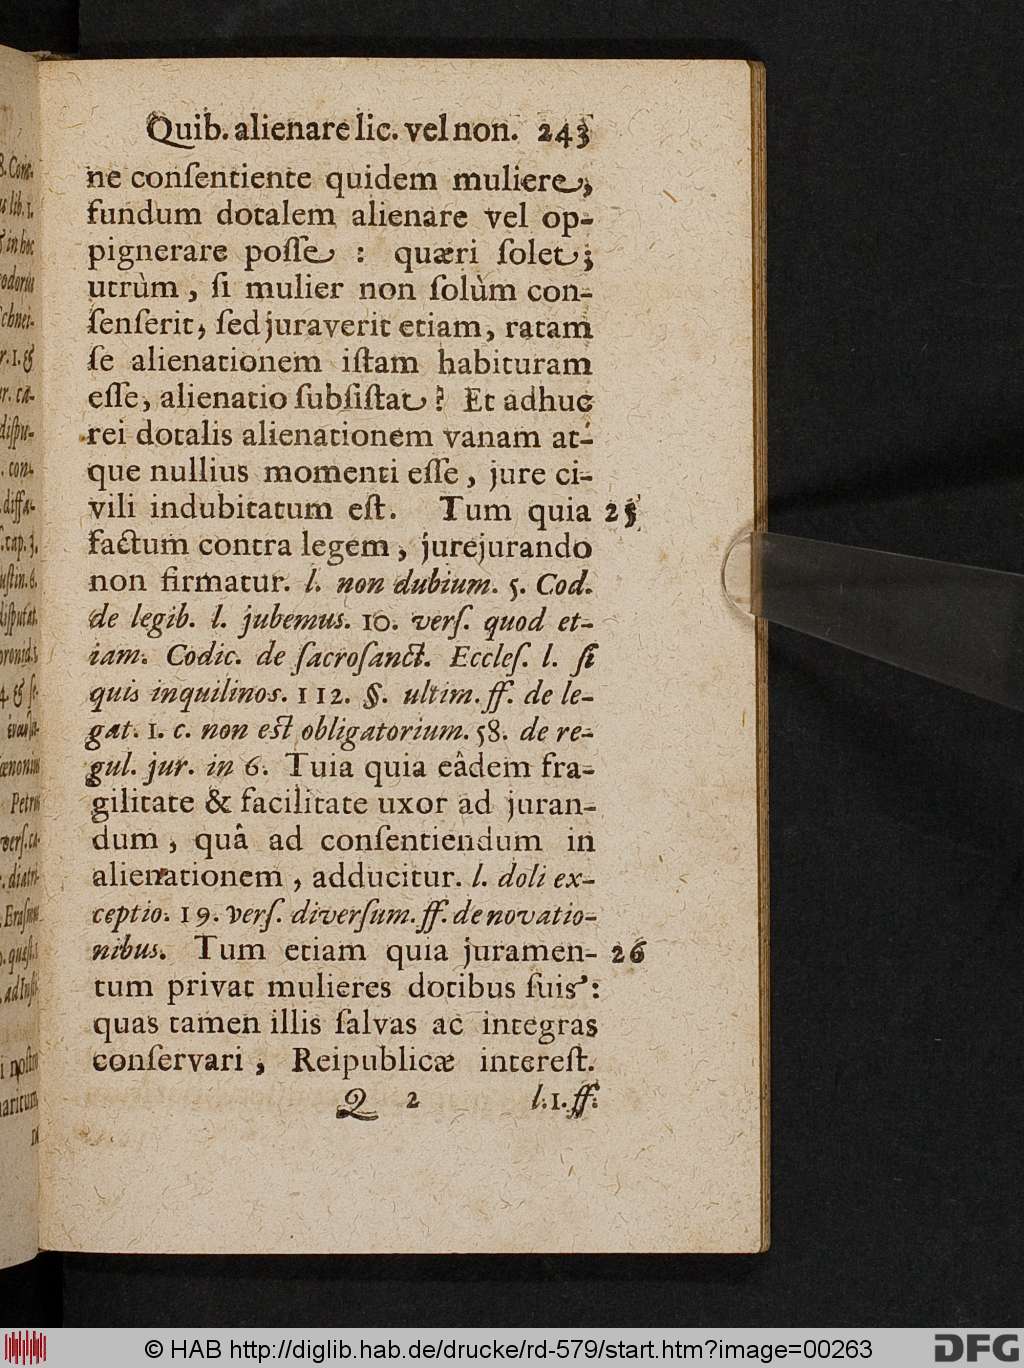 Quib. alienare lic. vel non. 243
ne conſentiente quidem muliere,
fundum dotalem alienare vel op-
pignerare poſſe : quæri ſolet;
utrùm, ſi mulier non ſolùm con-
ſenſerit, ſed juraverit etiam, ratam
ſe alienationem iſtam habituram
eſſe, alienatio ſubſiſtat? Et adhuc
rei dotalis alienationem vanam at-
que nullius momenti eſſe, jure ci-
vili indubitatum eſt. Tum quia 25
factum contra legem, jurejurando
non firmatur. l. non dubium. 5. Cod.
de legib. l. jubemus. 10. verſ. quod et-
iam. Codic. de ſacroſanct. Eccleſ. l. ſi
quis inquilinos. 112. §. ultim. ff. de le-
gat. 1. c. non eſt obligatorium. 58. de re-
gul. jur. in 6. Tuia quia eâdem fra-
gilitate & facilitate uxor ad juran-
dum, quâ ad conſentiendum in
alienationem, adducitur. l. doli ex-
ceptio. 19. verſ. diverſum. ff. de novatio-
nibus. Tum etiam quia juramen- 26
tum privat mulieres dotibus ſuis:
quas tamen illis ſalvas ac integras
conſervari, Reipublicæ intereſt.
Q 2 l. 1. ff.
© HAB http://diglib.hab.de/drucke/rd-579/start.htm?image=00263
DFG